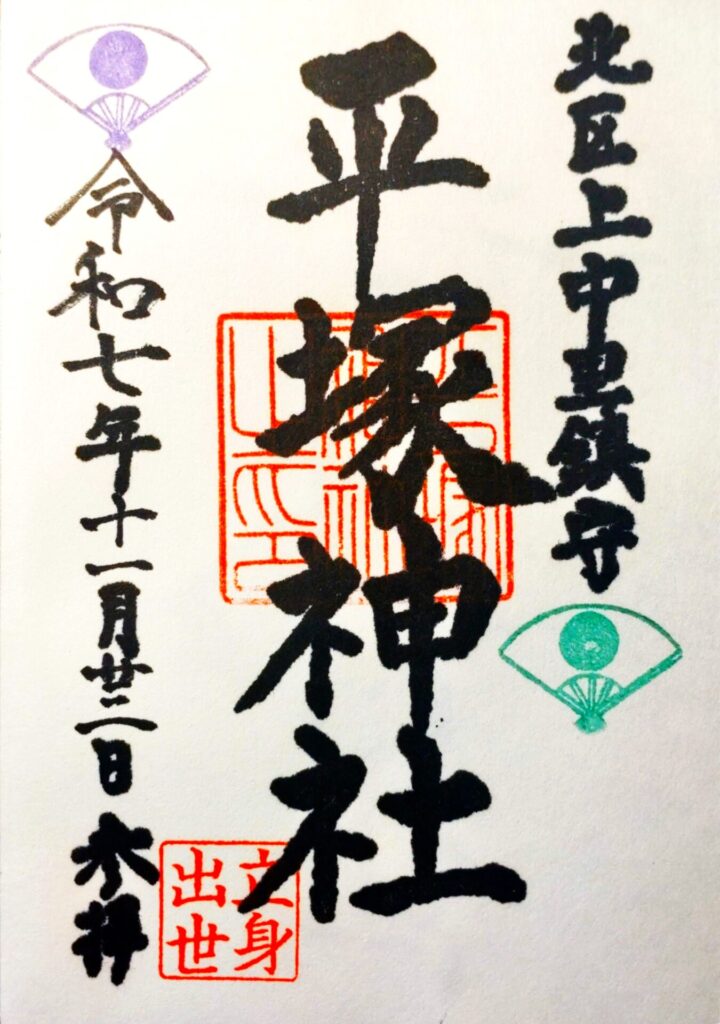 北区上中里鎮守
平塚神社
平塚神社之印
立身
出世
令和七年十一月廿二日 参拝